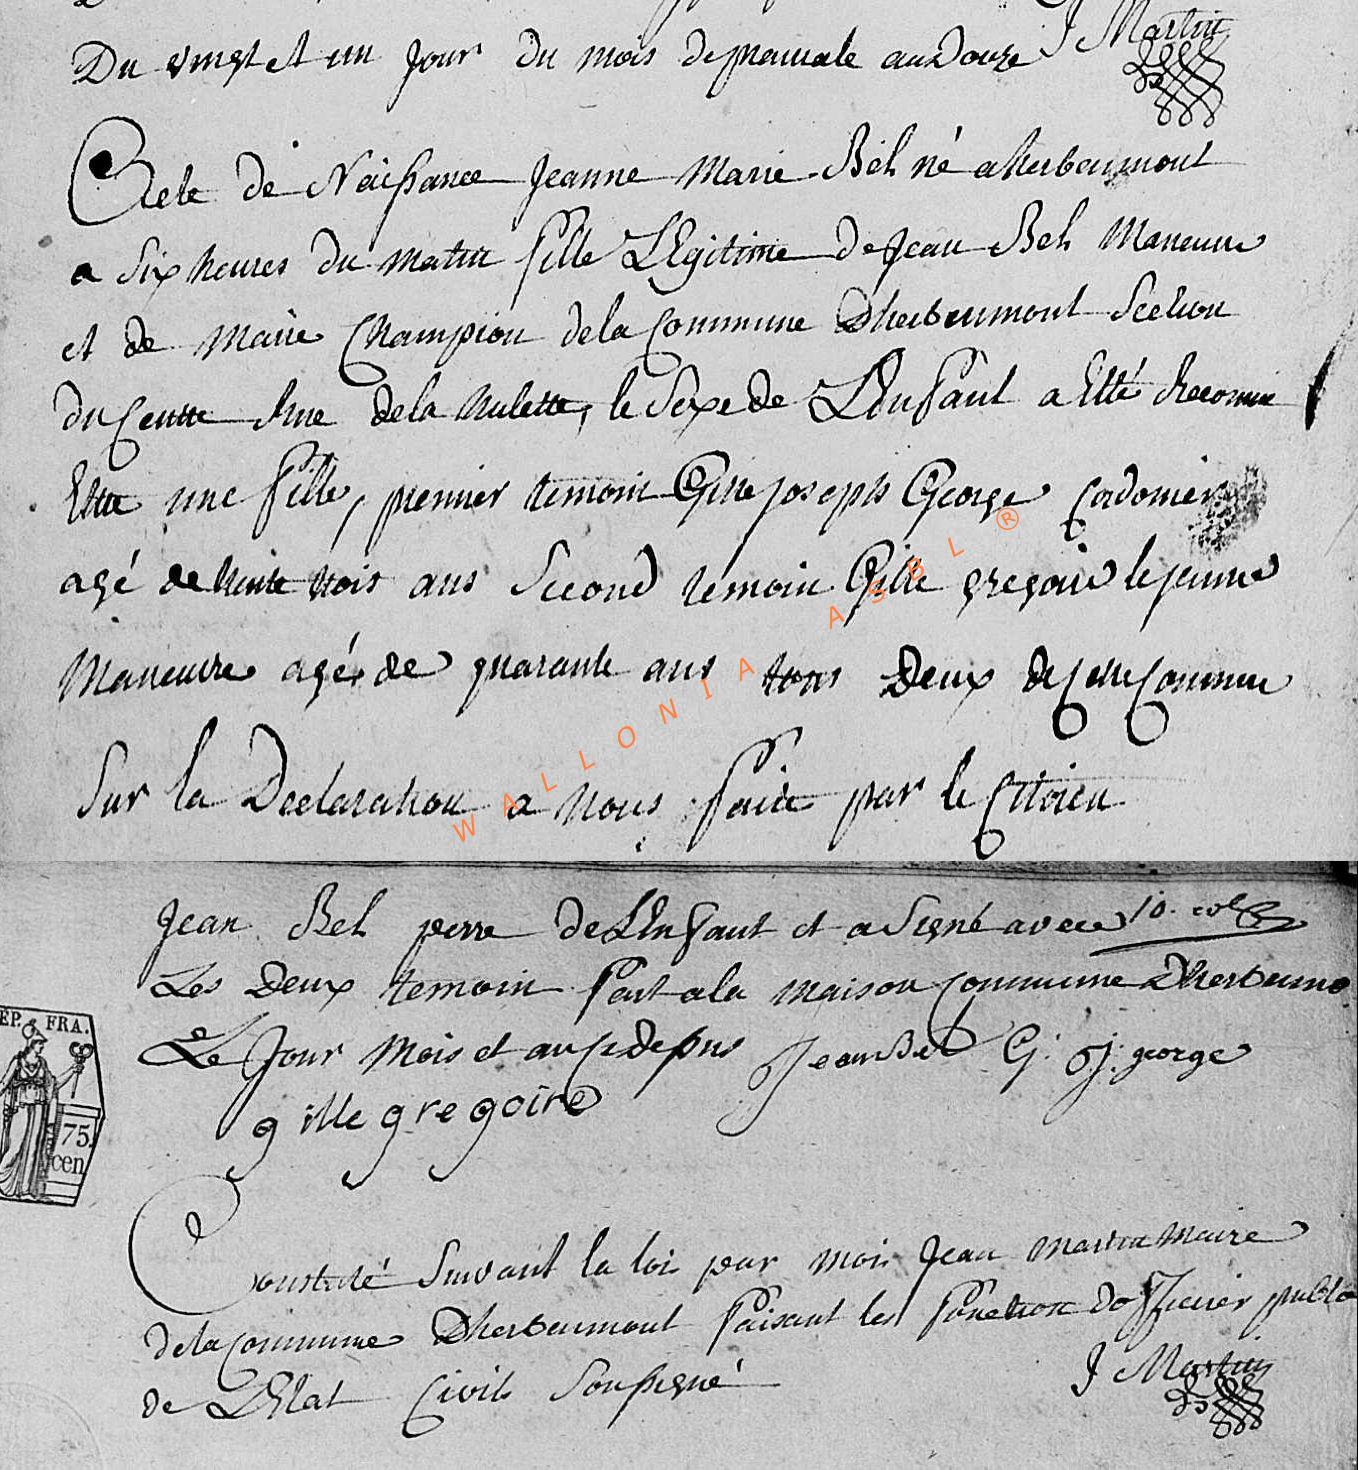 J Martin
Du vingt et un Jour du mois de prairiale an Douze
Acte de Naissance Jeanne Marie Bch né a herbeumont
a Six heures du matin fille LEgitime de Jean Bch Maneuvre
et de Marie Champion de la Commune Dherbeumont Section
du Centre Rue de la Nulette, le Sexe de LEnfant a Etté Reconnu
Etre une fille, premier temoin Gille joseph George Cordonier
agé de trente trois ans Second temoin Gille gregoire le jeune
Maneuvre agé de quarante ans tous Deux de Cette Commune
Sur la Declaration a nous faite par le Citoien
Jean Bch perre de LEnfant et a Signé avec
Les Deux temoin fait a la maison commune Dherbeumo
Le Jour Mois et an Cydepus Jean Bch G: J: george
gille gregoire
EP. FRA.
75
cen
Constaté Suivant la loi par moi Jean Martin Maire
de la commune Dherbeumont faisant les fonction dofficier public
de LEtat Civile Soussigné
J Martin
WALLONIA ASBL ®